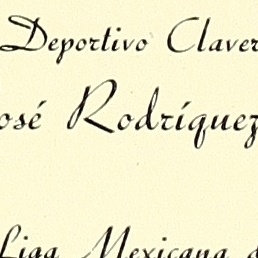 Deportivo Claver
osé Rodríquez
Liga Mexicana d